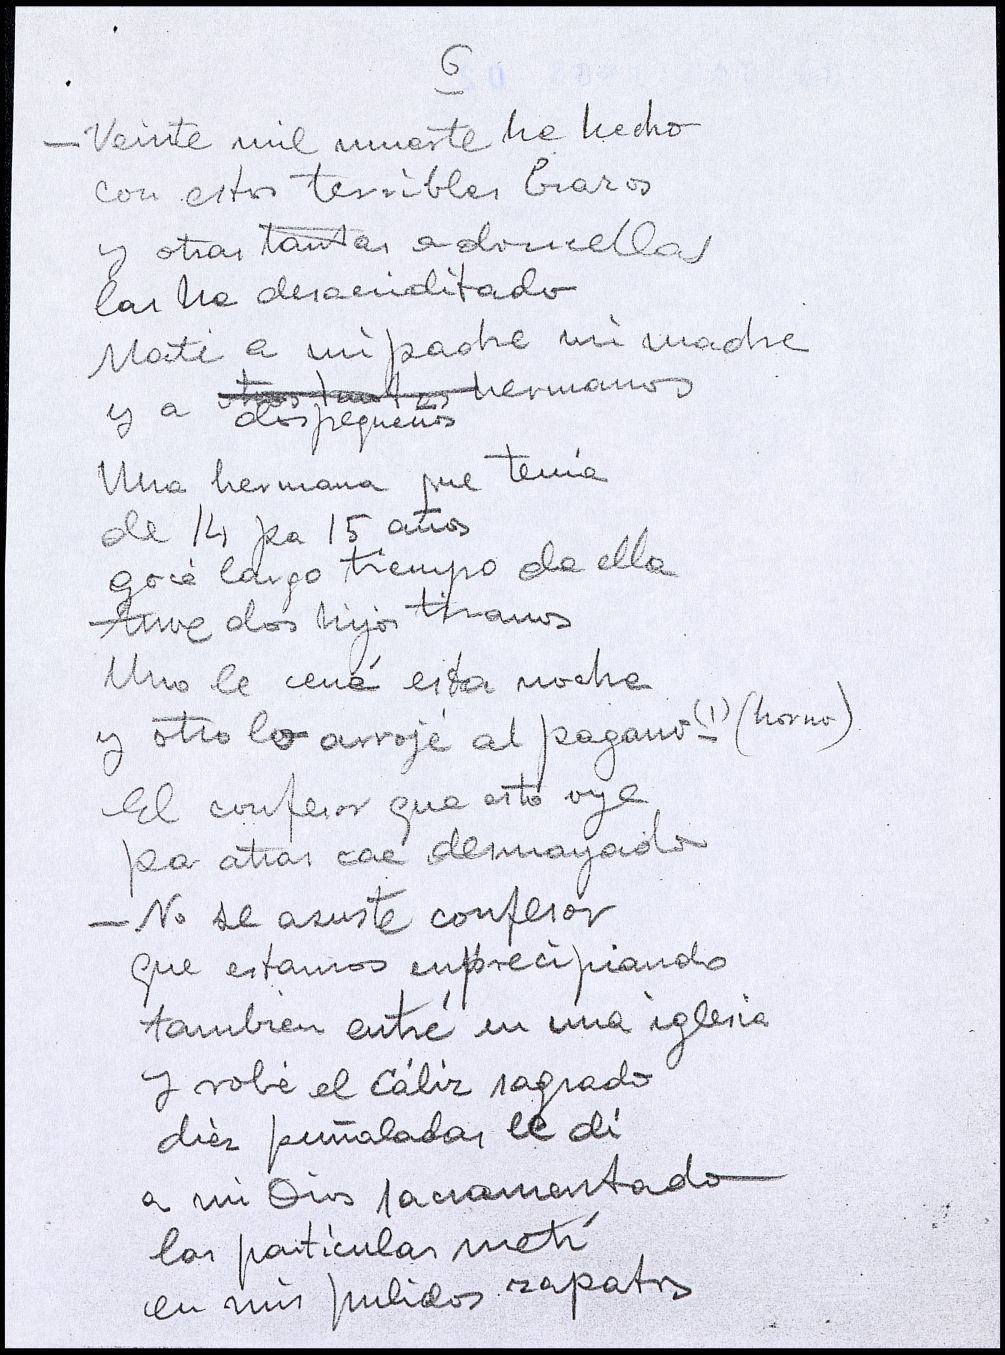 6
— Veinte mil muerte he hecho
con estos terribles brazos
y otras tantas a doncellas
las he desacriditado
Maté a mi padre mi madre
y a otros tantos hermanos
dos pequeños
Una hermana que tenia
de 14 pa 15 años
gocé largo tiempo de ella
tuve dos hijos tiranos
Uno le cené esta noche
y otro lo arrojé al pagano (1) (horno)
El confesor que esto oye
pa atras cae desmayado
— No se asuste confesor
que estamos enprecipiando
tambien entré en una iglesia
y robé el Cáliz sagrado
diez puñaladas le di
a mi Dios sacramentado
las particulas metí
en mis pulidos zapatos